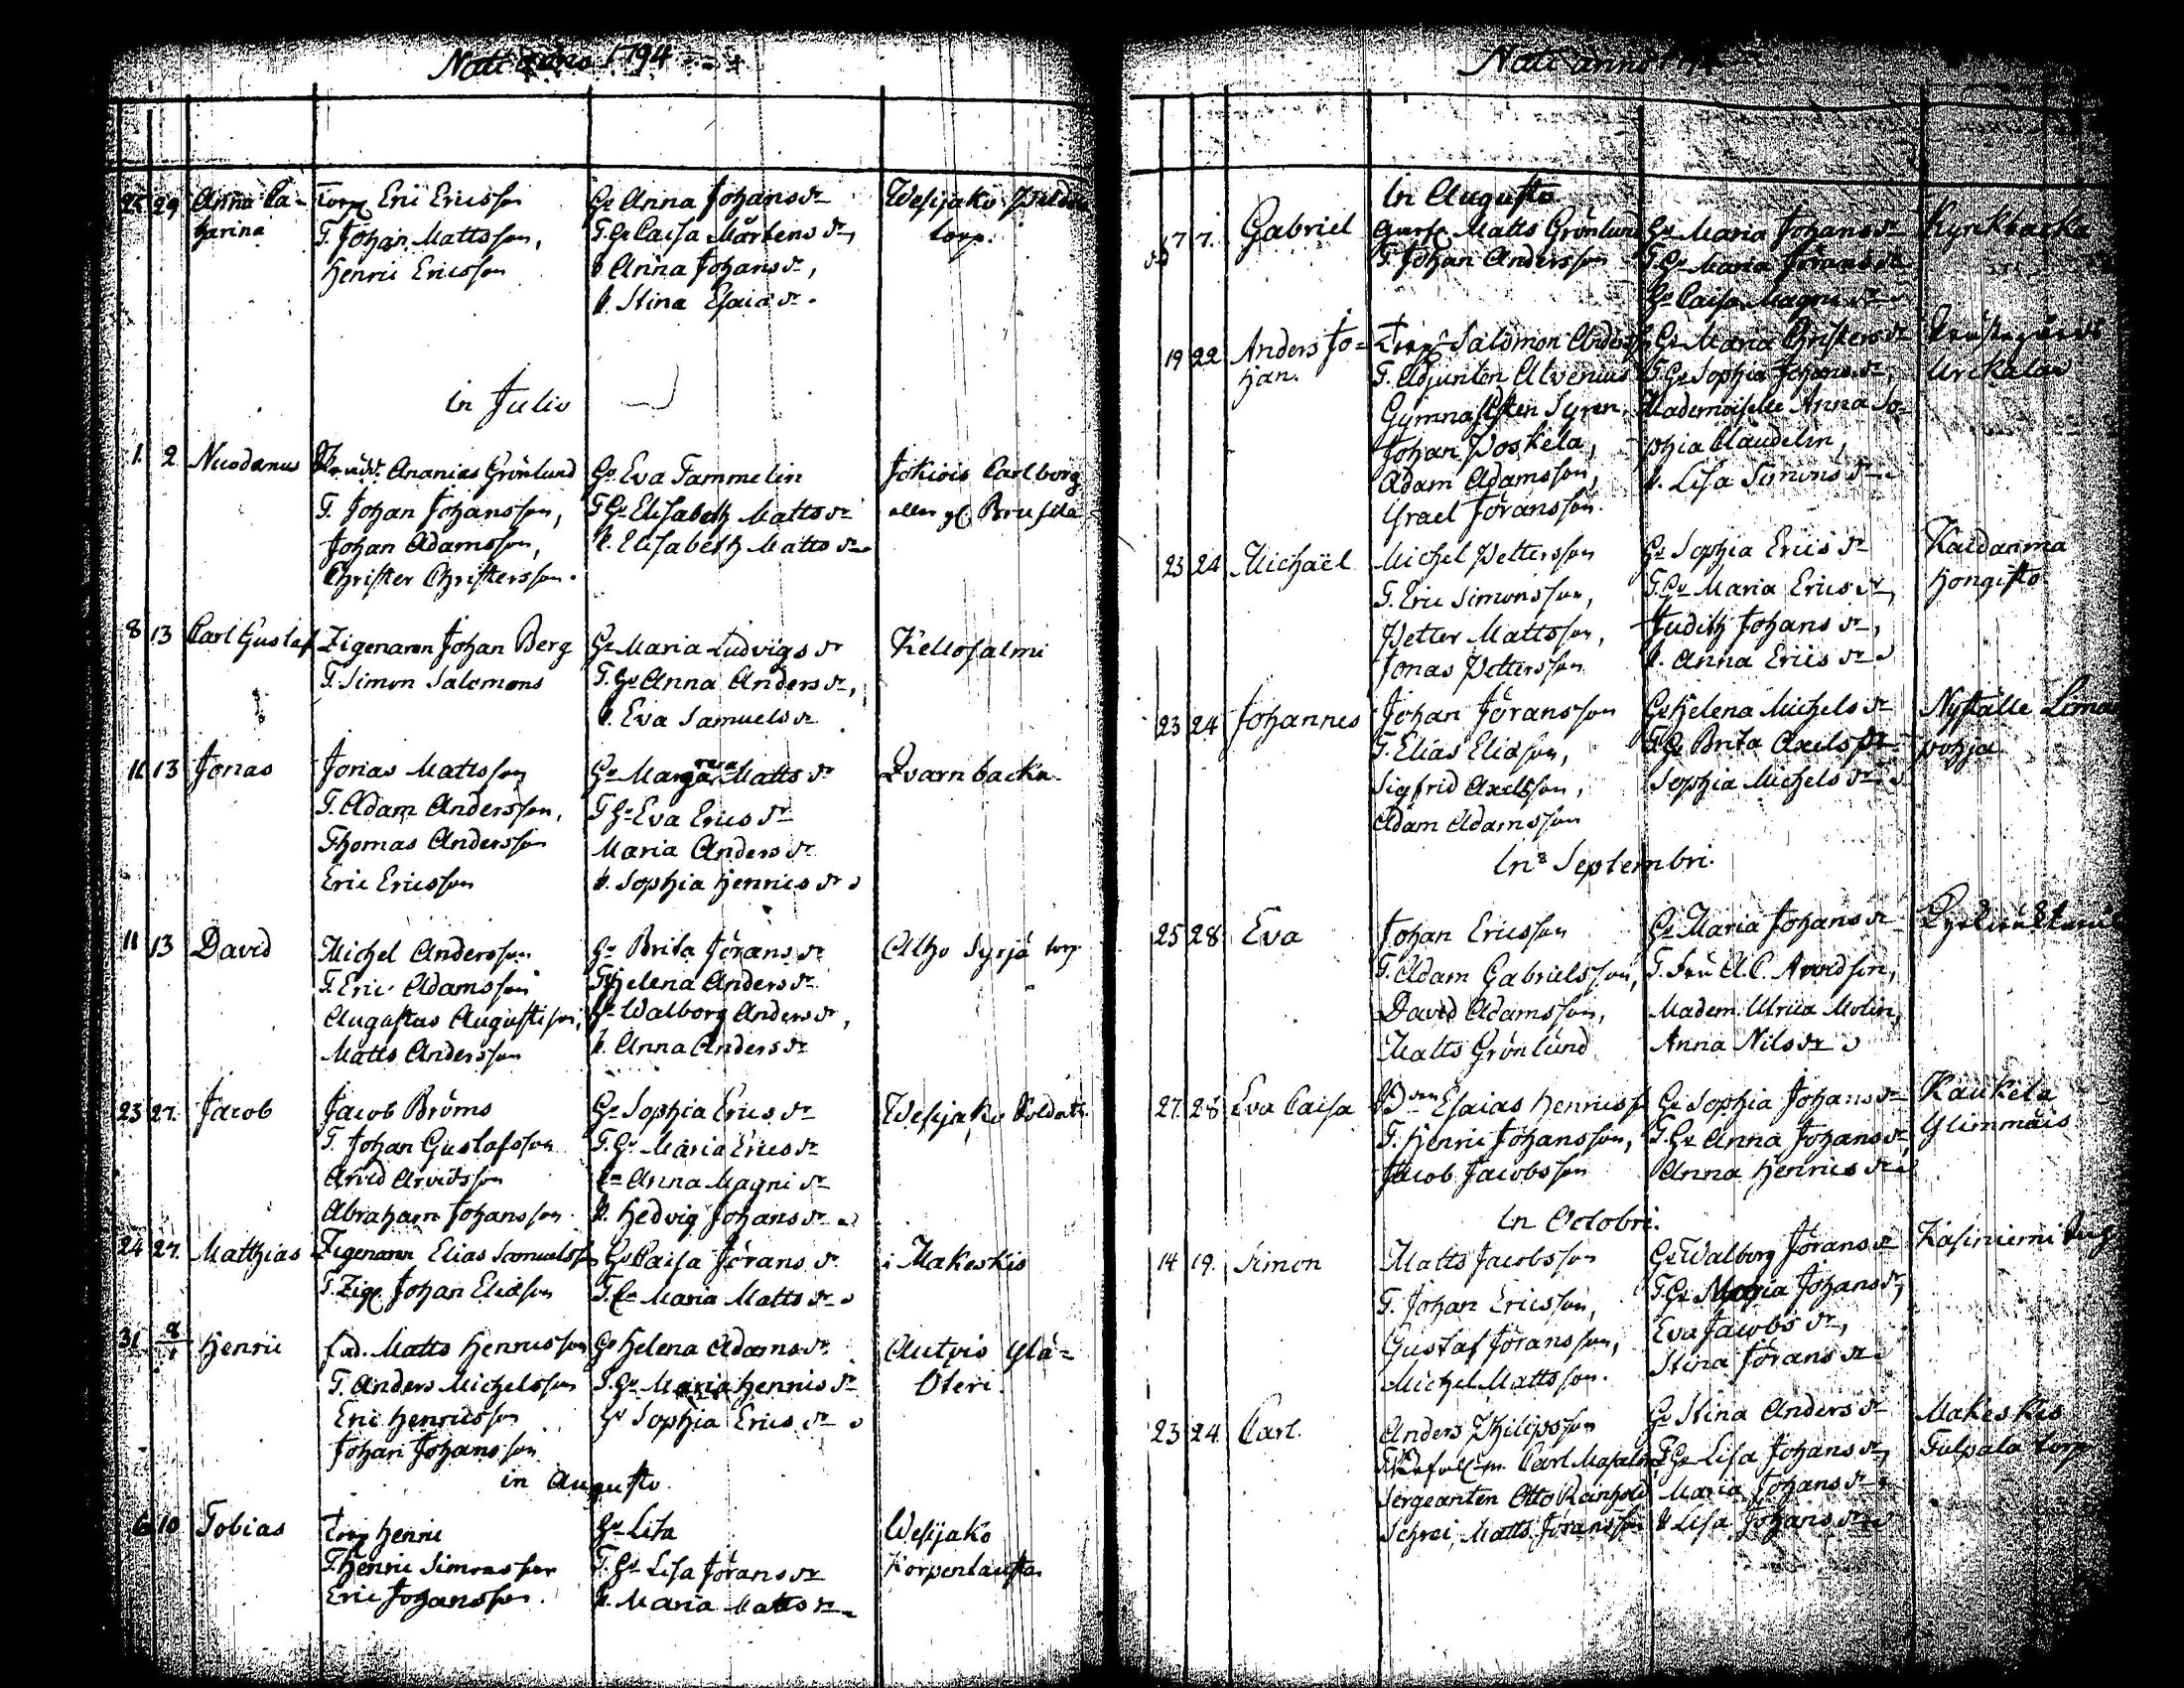 Nati anno 1794
25 29 Anna Ca- Torp Eric Ericsson Ha Anna Johans dr Wesijako
harina T. Johan Mattsson, T. Ha Caisa Mårtens dr, torp.
Henric Ericsson P. Anna Johans dr,
P. Stina Esaiæ dr.
In Julio
1. 2 Nicodemus Ananias Grönlund Hu Eva Tammelin Jokiois Carlborg
T. Johan Johansson, T. Hu Elisabeth Matts dr eller
Johan Adamsson, P. Elisabeth Matts dr
Christer Christersson.
8 13 Carl Gustaf Zigenaren Johan Berg Hu Maria Ludvigs dr Kellosalmi
T. Simon Salomons T. Hu Anna Anders dr,
P. Eva Samuels dr
11 13 Jonas Jonas Mattsson Hu Margareta Matts dr Qvarnbacka
T. Adam Andersson, T Hu Eva Erics dr
Thomas Andersson Maria Anders dr
Eric Ericsson P. Sophia Henrics dr
11 13 David Michel Andersson Hu Brita Jörans dr Alho Syrjä torp
T. Eric Adamsson T Helena Anders dr
Augustus Augustison, Hu Walborg Anders dr,
Matts Andersson P. Anna Anders dr
23 27. Jacob Jacob Broms Hu Sophia Erics dr Wesijako Soldat
T. Johan Gustafsson T. Hu Maria Erics dr
Arvid Arvidsson Anna Magni dr
Abraham Johansson P. Hedvig Johans dr
24 27. Matthias Zigenaren Elias Samuelss Hu Caisa Jörans dr i Makeskis
T. Zig Johan Eliasson T. Maria Matts dr
31 Henric Matts Henricsson Hu Helena Adams dr Autvis
T. Anders Michelsson T. Hu Maria Henrics dr Oteri.
Eric Henricsson Hu Sophia Erics dr
Johan Johansson
in Augusto
6 10 Tobias Torp Henric Hu Lisa Wesijako
T Henric Simonsson T. Hu Lisa Jörans dr Korpenlauta
Eric Johansson. P. Maria Matts dr
Nati anno
In Augusto
7 7. Gabriel Matts Grönlund Hu Maria Johans dr Kyrkbacka
T. Johan Andersson T. Hu Maria Jörans dr
Hu Caisa Magni dr
19 22 Anders Jo- Torp Salomon Anderss Hu Maria Christers dr
han. T. Adjuncten Alvenius T. Hu Sophia Johans dr, Urekalas
Gymnasisten Syren, Mademoiselle Anna So-
Johan Poskela, phia Claudelin,
Adam Adamsson, P. Lisa Simons dr
Israel Jöransson.
23 24 Michaël Michel Pettersson Hu Sophia Erics dr Kaidanma
T. Eric Simonsson, T. Hu Maria Erics dr, Hongisto
Petter Mattsson, Judith Johans dr,
Jonas Pettersson P. Anna Erics dr
23 24 Johannes Johan Jöransson Hu Helena Michels dr Nyställe
T. Elias Eliasson, T. Hu Brita Axels dr pohja
Sigfrid Axelsson, Sophia Michels dr
Adam Adamsson
In Septembri.
25 28 Eva Johan Ericsson Hu Maria Johans dr
T. Adam Gabrielsson, T. Fru A. C. Arvidson,
David Adamsson, Madem. Ulrica Molin,
Matts Grönlund Anna Nils dr
27. 28 Eva Caisa Esaias Henricss Hu Sophia Johans dr Kaukela
T. Henric Johansson, T. Hu Anna Johans dr Ylimmäis
Jacob Jacobsson Anna Henrics dr
In Octobri.
14 19. Simon Matts Jacobsson Hu Walborg Jörans dr Kasiniemi
T. Johan Ericsson, T. Hu Maria Johans dr,
Gustaf Jöransson, Eva Jacobs dr,
Michel Mattsson. Stina Jörans dr
23 24 Carl. Anders Philipsson Hu Stina Anders dr Makeskis
Carl Masalin T Hu Lisa Johans dr, Tulpala torp
Sergeanten Otto Reinhold Maria Johans dr
Schrei, Matts Jöransson P Lisa Johans dr